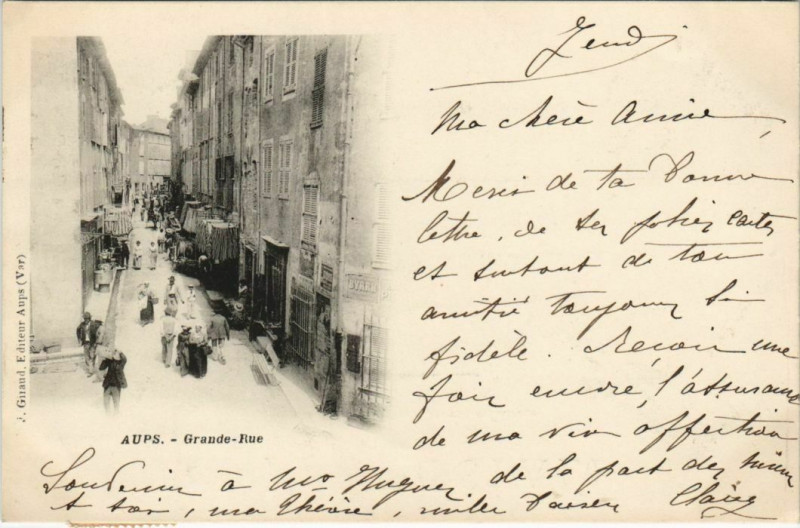 Jeudi
Ma chère Annie,
Merci de ta bonne
lettre, de tes jolies cartes
et surtout de ton
amitié toujours si
fidèle. Reçois une
fois encore, l'assurance
de ma vive affection
Souvenir à Mr Hugues, de la part des miens
à toi, ma chérie, mille baisers Claire
J. Giraud, Editeur Aups (Var)
AUPS. - Grande-Rue